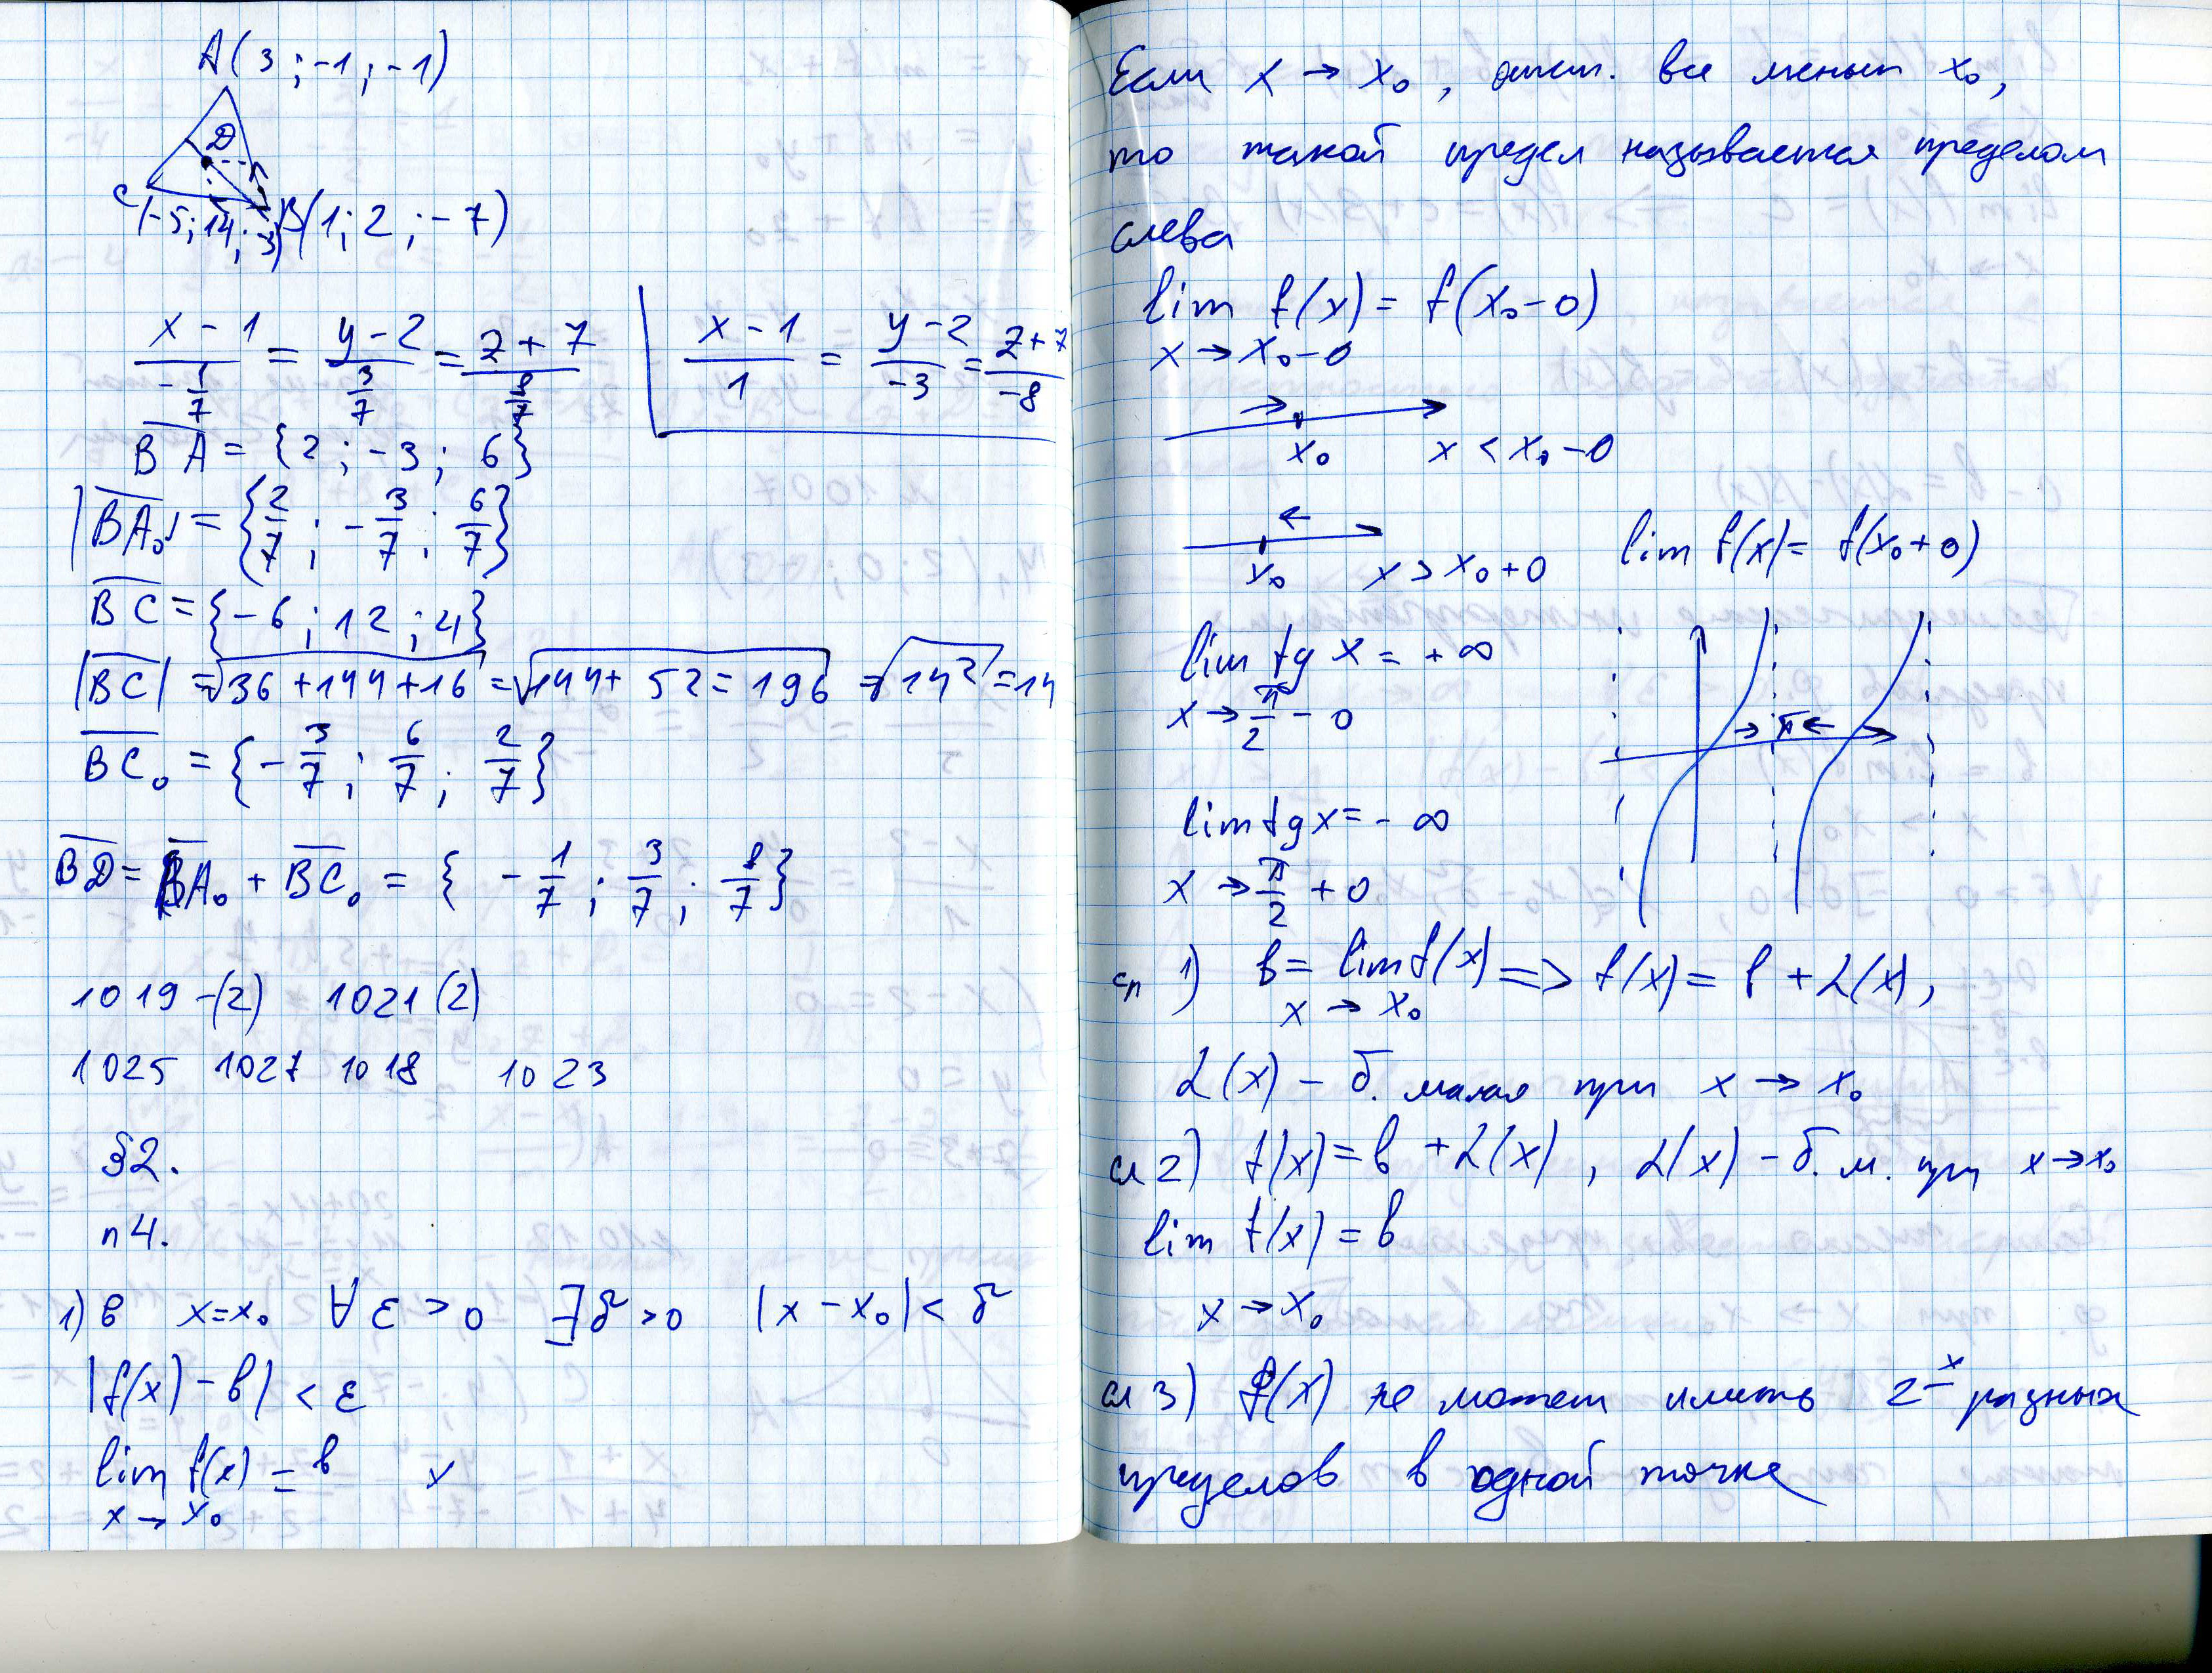 A(3;-1;-1)
D
C(-5;14;-3) B(1;2;-7)
x-1/-1/7 = y-2/3/7 = z+7/8/7 x-1/1 = y-2/-3 = z+7/-8
BA = {2; -3; 6}
|BA₀| = {2/7; -3/7; 6/7}
BC = {-6; 12; 4}
|BC| = √36+144+16 = √144+52=196 = √14² = 14
BC₀ = {-3/7; 6/7; 2/7}
BD = BA₀ + BC₀ = { -1/7; 3/7; 8/7}
1019-(2) 1021(2)
1025 1027 1018 1023
§2.
п4.
1) в x=x₀ ∀ε>0 ∃δ>0 |x-x₀|<δ
|f(x)-в|<ε
lim f(x) = в x
x→x₀
Если x→x₀, все меньш x₀,
то такой предел называется пределом
слева
lim f(x) = f(x₀-0)
x→x₀-0
x₀ x<x₀-0
x₀ x>x₀+0 lim f(x) = f(x₀+0)
lim tg x = +∞
x→π/2-0
π
lim tg x = -∞
x→π/2+0
сл 1) в = lim f(x) => f(x) = в + α(x),
x→x₀
α(x) - б. малая при x→x₀
сл 2) f(x) = в + α(x), α(x) - б. м. при x→x₀
lim f(x) = в
x→x₀
сл 3) f(x) не может иметь 2-х разных
пределов в одной точке